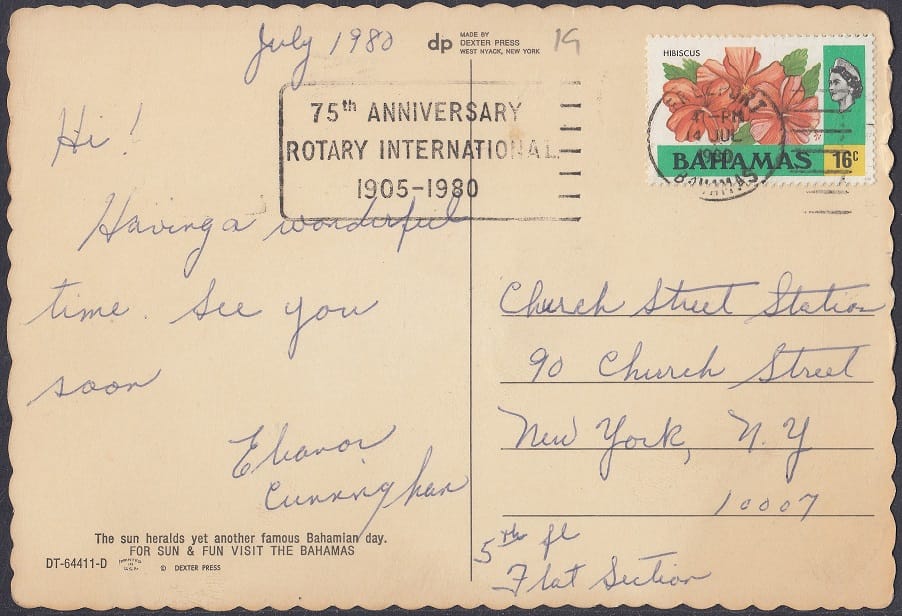 July 1980
dp
MADE BY
DEXTER PRESS
WEST NYACK, NEW YORK
19
HIBISCUS
BAHAMAS 16c
FREEPORT
-PM
14 JUL
1980
BAHAMAS
75th ANNIVERSARY
ROTARY INTERNATIONAL
1905-1980
Hi!
Having a wonderful
time. See you
soon
Eleanor
Cunningham
Church Street Station
90 Church Street
New York, N.Y
10007
5th fl
Flat Section
The sun heralds yet another famous Bahamian day.
FOR SUN & FUN VISIT THE BAHAMAS
DT-64411-D PRINTED IN U.S.A. © DEXTER PRESS